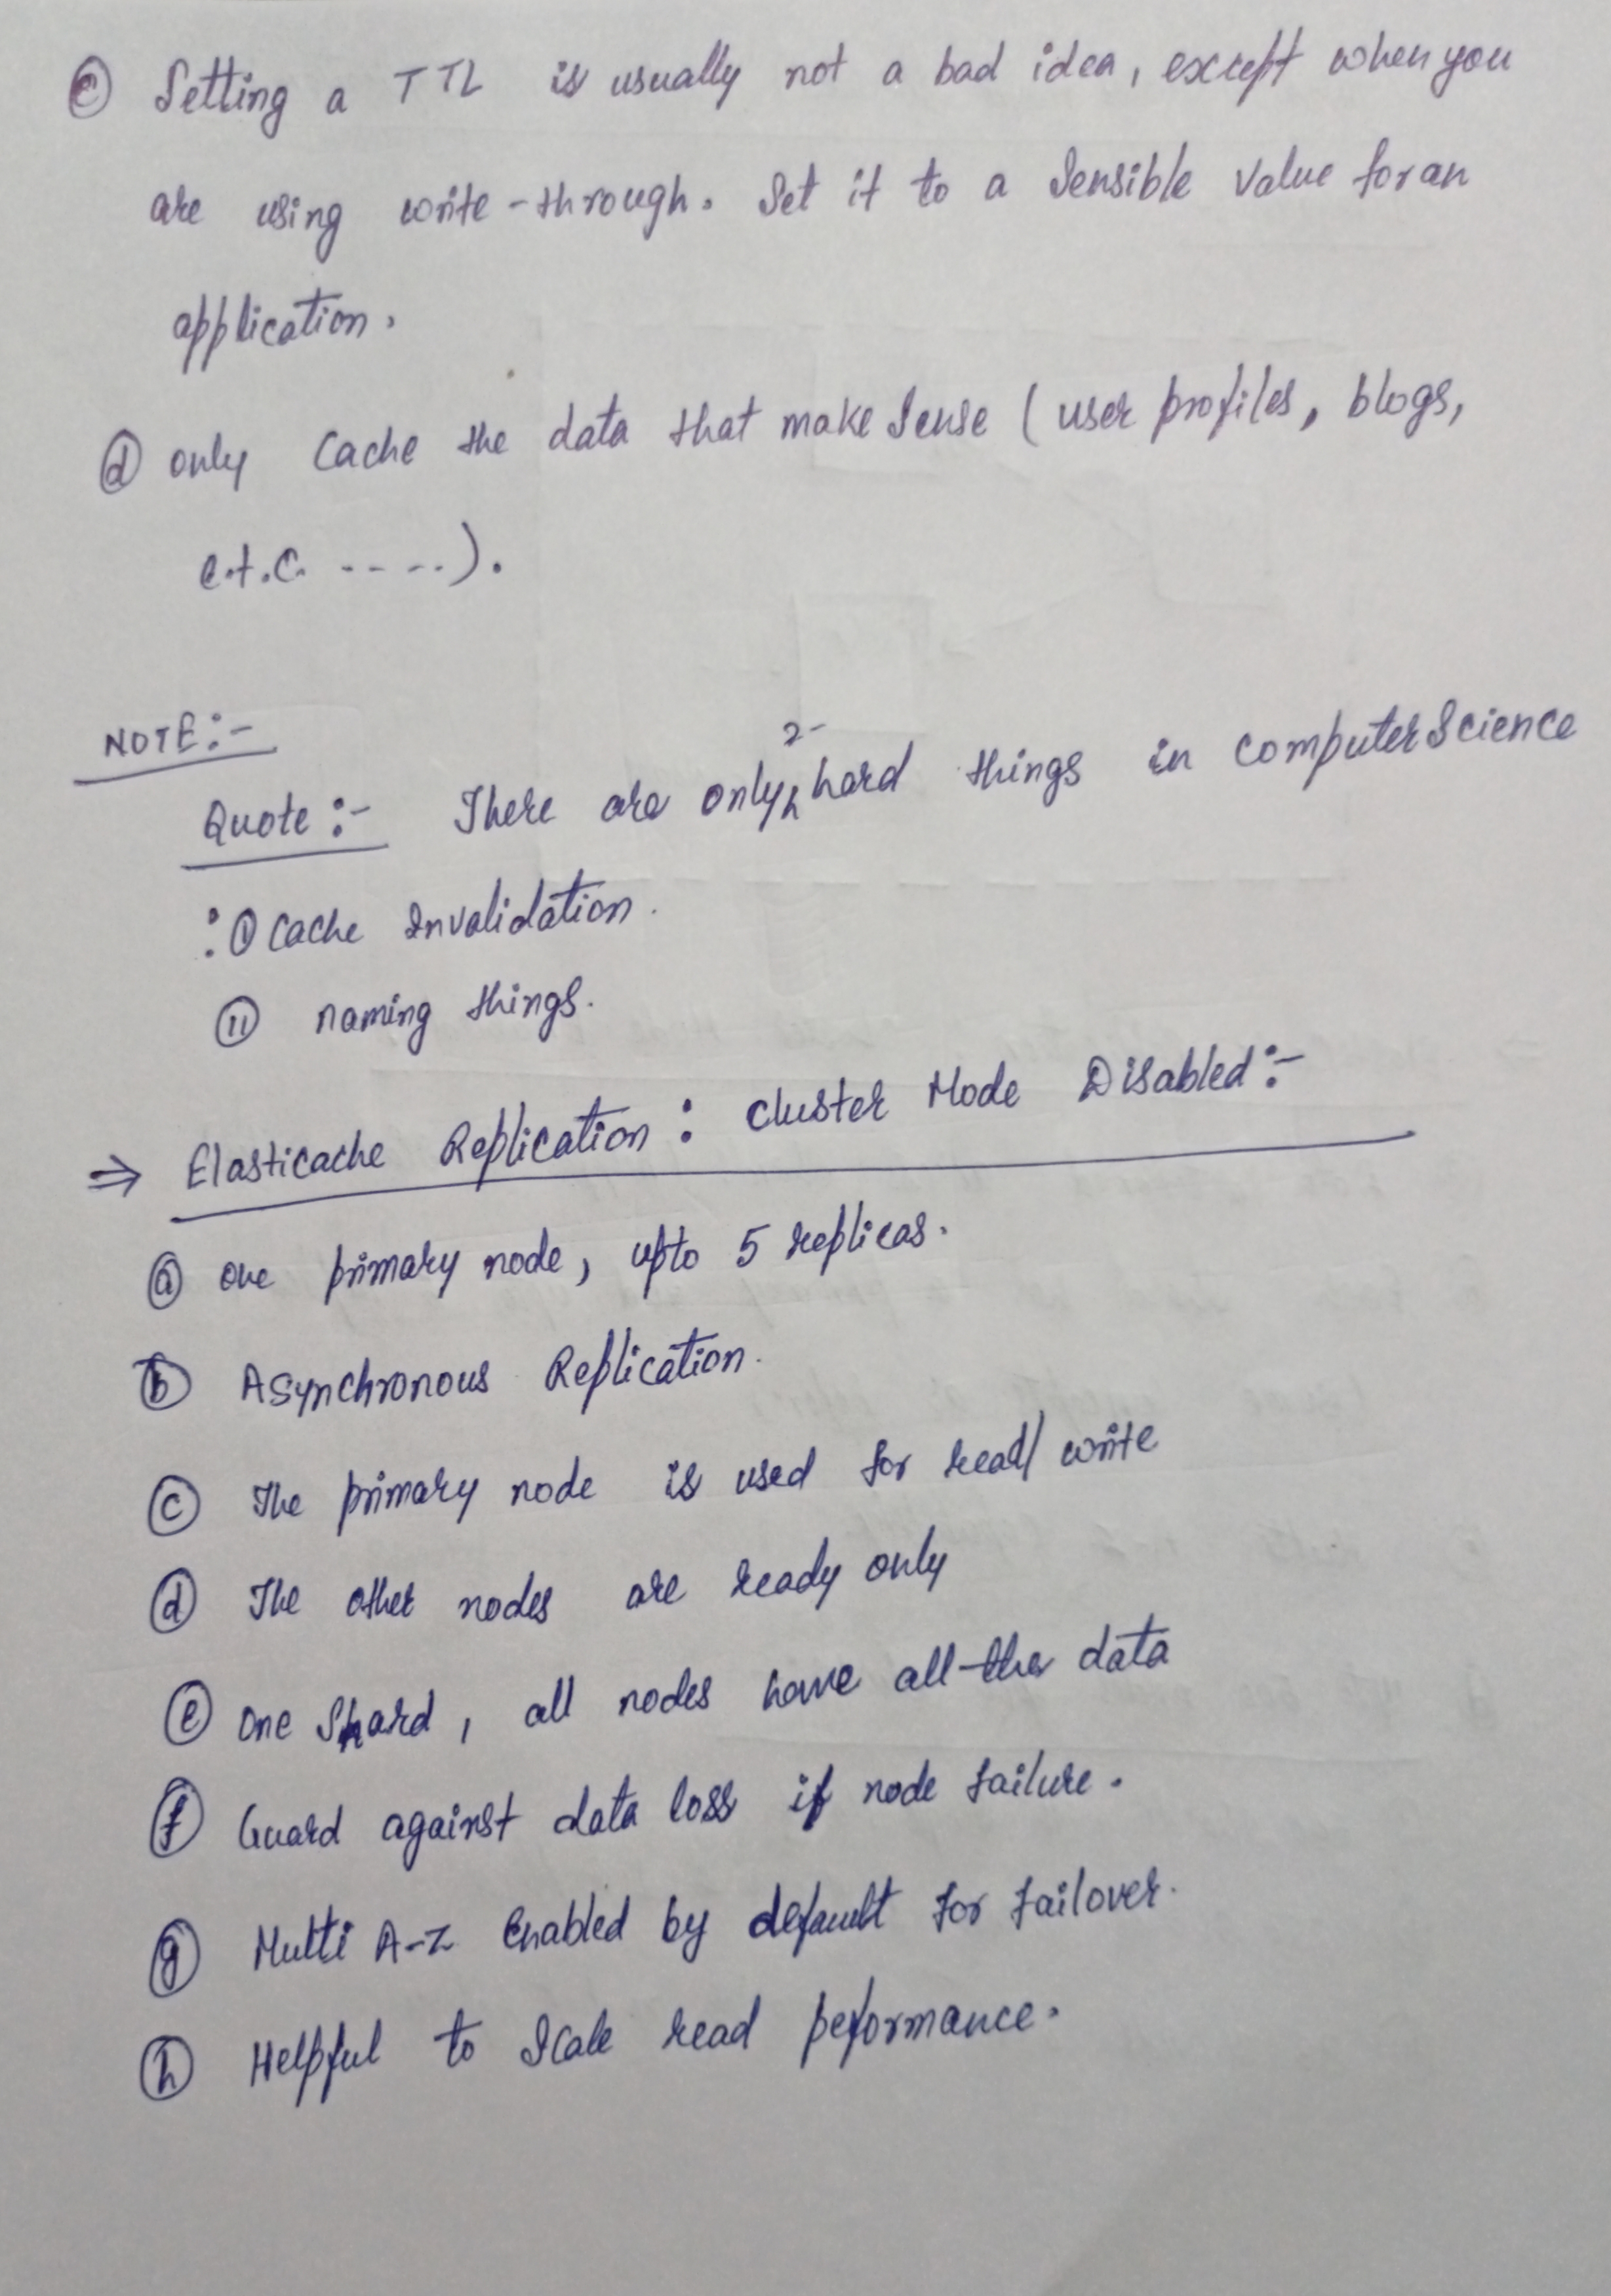 ⓒ Setting a TTL is usually not a bad idea, except when you
are using write-through. Set it to a sensible value for an
application.
ⓓ only Cache the data that make sense (user profiles, blogs,
e.t.c. .....).
NOTE:-
Quote:- There are only 2 hard things in computer Science
: ① Cache Invalidation.
⑪ naming things.
⇒ Elasticache Replication : Cluster Mode Disabled:-
ⓐ one primary node, upto 5 replicas.
ⓑ Asynchronous Replication.
ⓒ The primary node is used for read/write
ⓓ The other nodes are ready only
ⓔ One Shard, all nodes have all the data
ⓕ Guard against data loss if node failure.
ⓖ Multi A-Z Enabled by default for failover.
ⓗ Helpful to Scale read peformance.